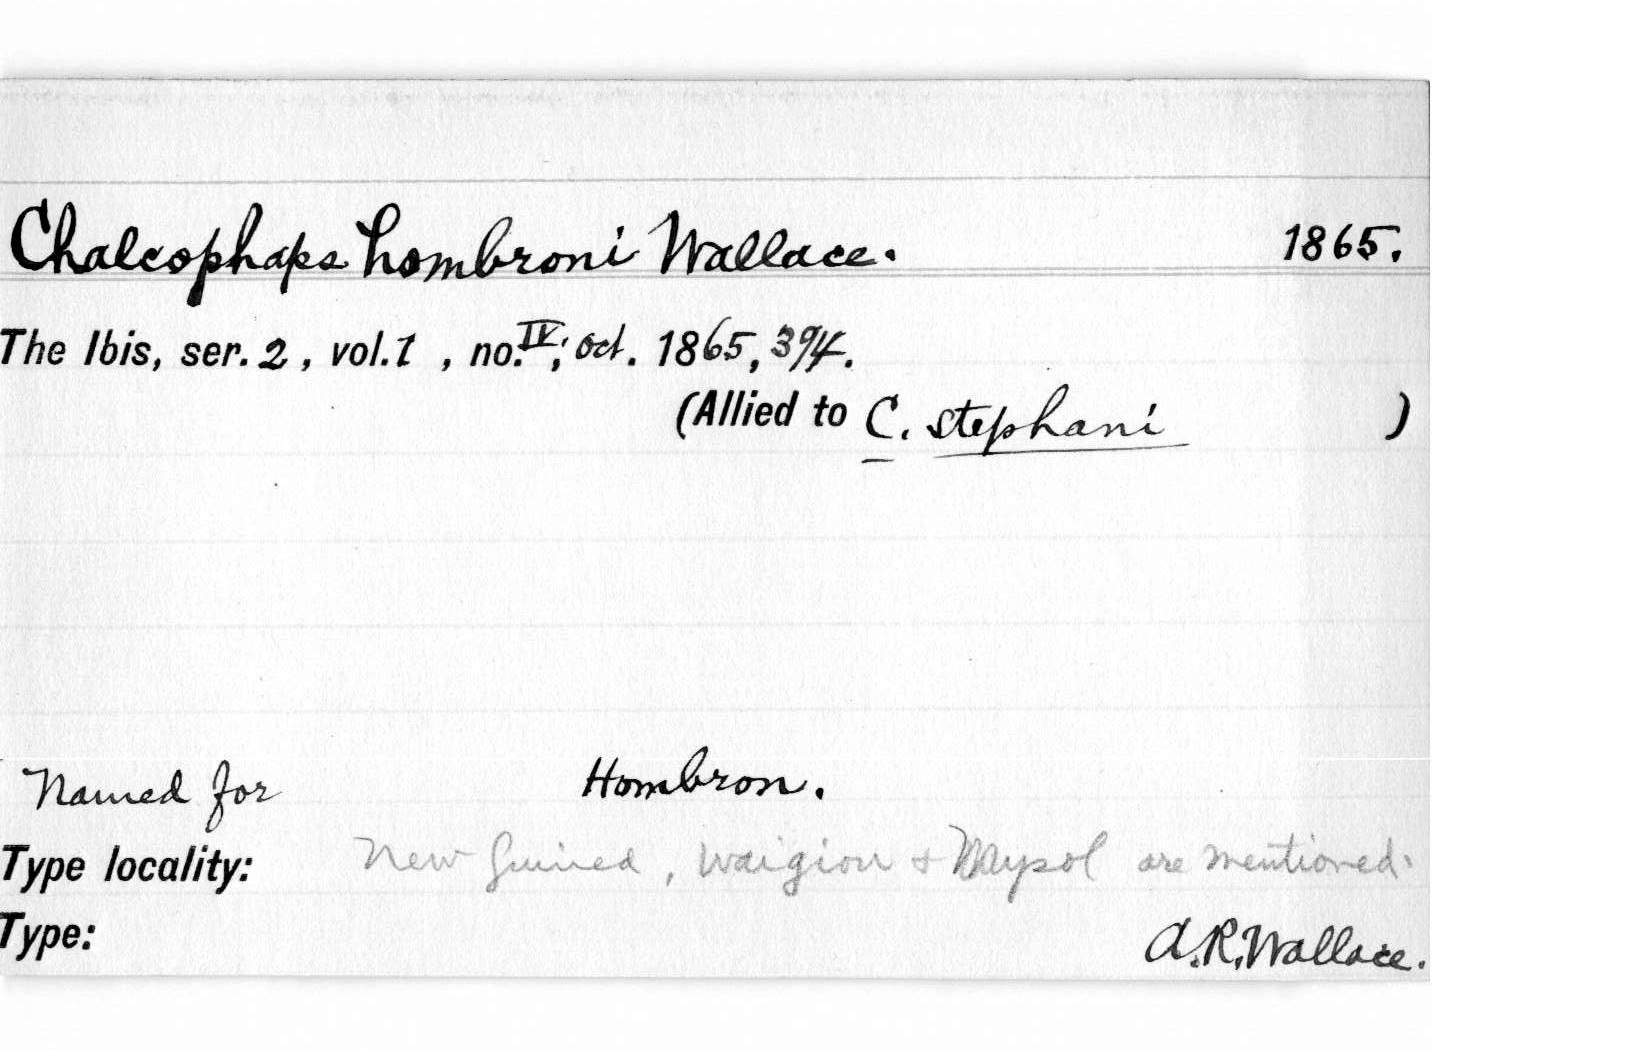 Chalcophaps hombroni Wallace. 1865.
The Ibis, ser. 2, vol. 1, no. IV; Oct. 1865, 394.
(Allied to C. stephani )
Named for Hombron.
Type locality: New Guinea, Waigiou & Mysol are mentioned.
Type: A.R. Wallace.